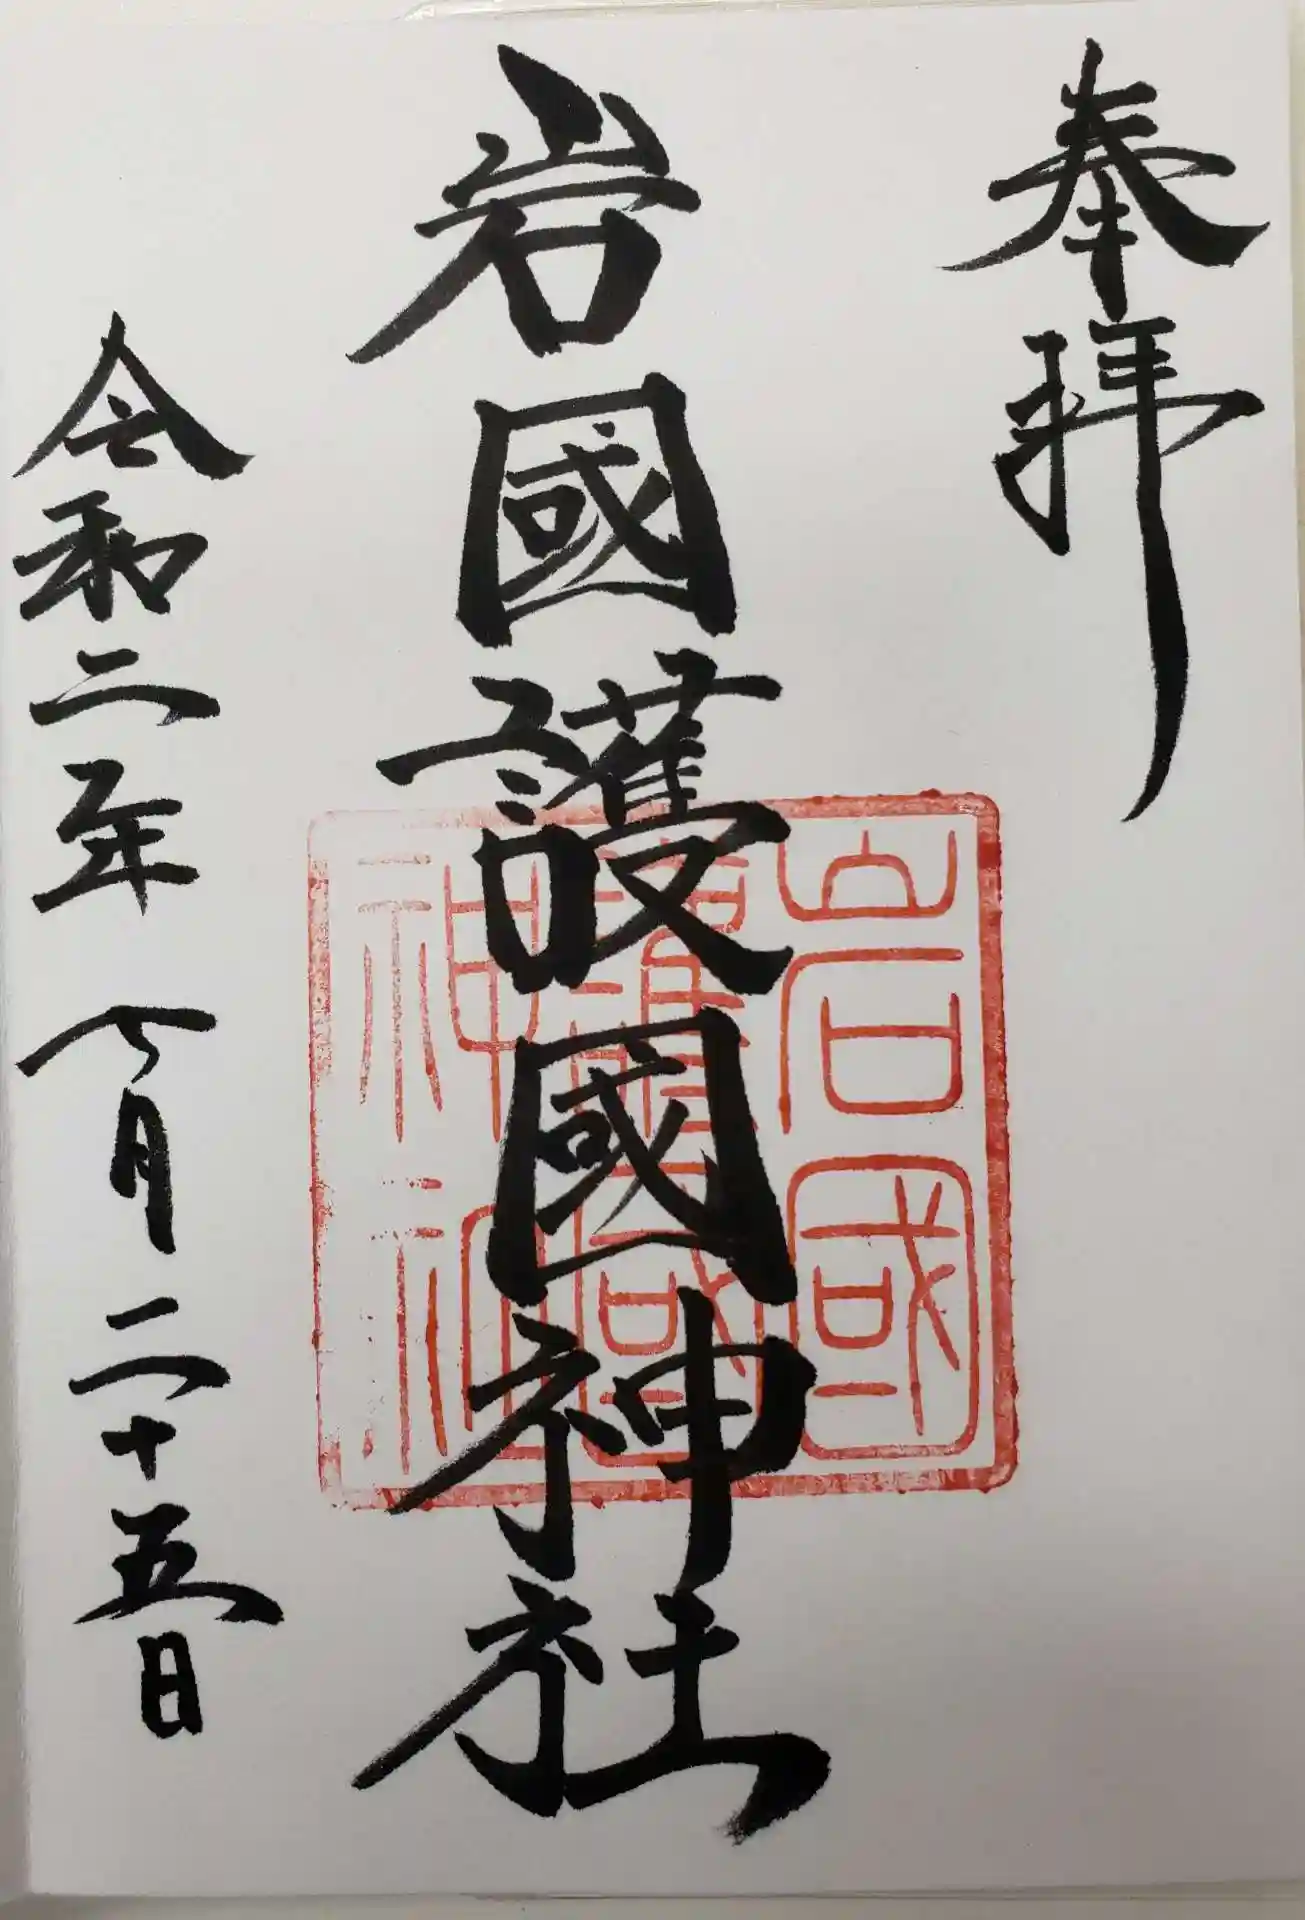 奉拝
岩國護國神社
岩國
護國
神社
令和二年七月二十五日